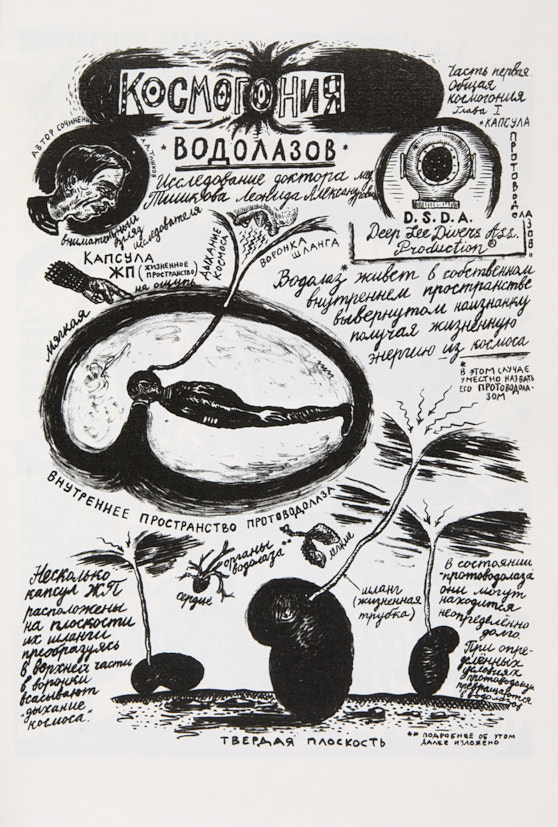 КОСМОГОНИЯ
* ВОДОЛАЗОВ *
Часть первая
Общая
космогония
Глава I
*КАПСУЛА
ПРОТОВОДО
ЛАЗОВ*
АВТОР СОЧИНЕНИЯ
Исследование доктора мед
Тишкова Леонида Александрович
внимательный
взгляд
исследователя
D.S.D.A.
Deep See Divers Ass.
Production®
КАПСУЛА
ЖП (ЖИЗНЕННОЕ
ПРОСТРАНСТВО)
на ощупь
мягкая
ДЫХАНИЕ
КОСМОСА
ВОРОНКА
ШЛАНГА
Водолаз* живёт в собственном
внутреннем пространстве
вывернутом наизнанку
получая жизненную
энергию из космоса
* В ЭТОМ СЛУЧАЕ
УМЕСТНО НАЗВАТЬ
ЕГО ПРОТОВОДОЛА-
ЗОМ
ВНУТРЕННЕЕ ПРОСТРАНСТВО ПРОТОВОДОЛАЗА
органы
водолаза**
сердце
лёгкие
шланг
(жизненная
трубка)
Несколько
капсул ЖП
расположены
на плоскости
их шланги
преобразуясь
в верхней части
в воронки
всасывают
"дыхание"
"космоса".
В состоянии
"протоводолаза"
они могут
находится
неопределённо
долго.
При опре-
делённых
условиях
протоводолаз
превращает
в водолаза
ТВЕРДАЯ ПЛОСКОСТЬ
** ПОДРОБНЕЕ ОБ ЭТОМ
ДАЛЕЕ ИЗЛОЖЕНО